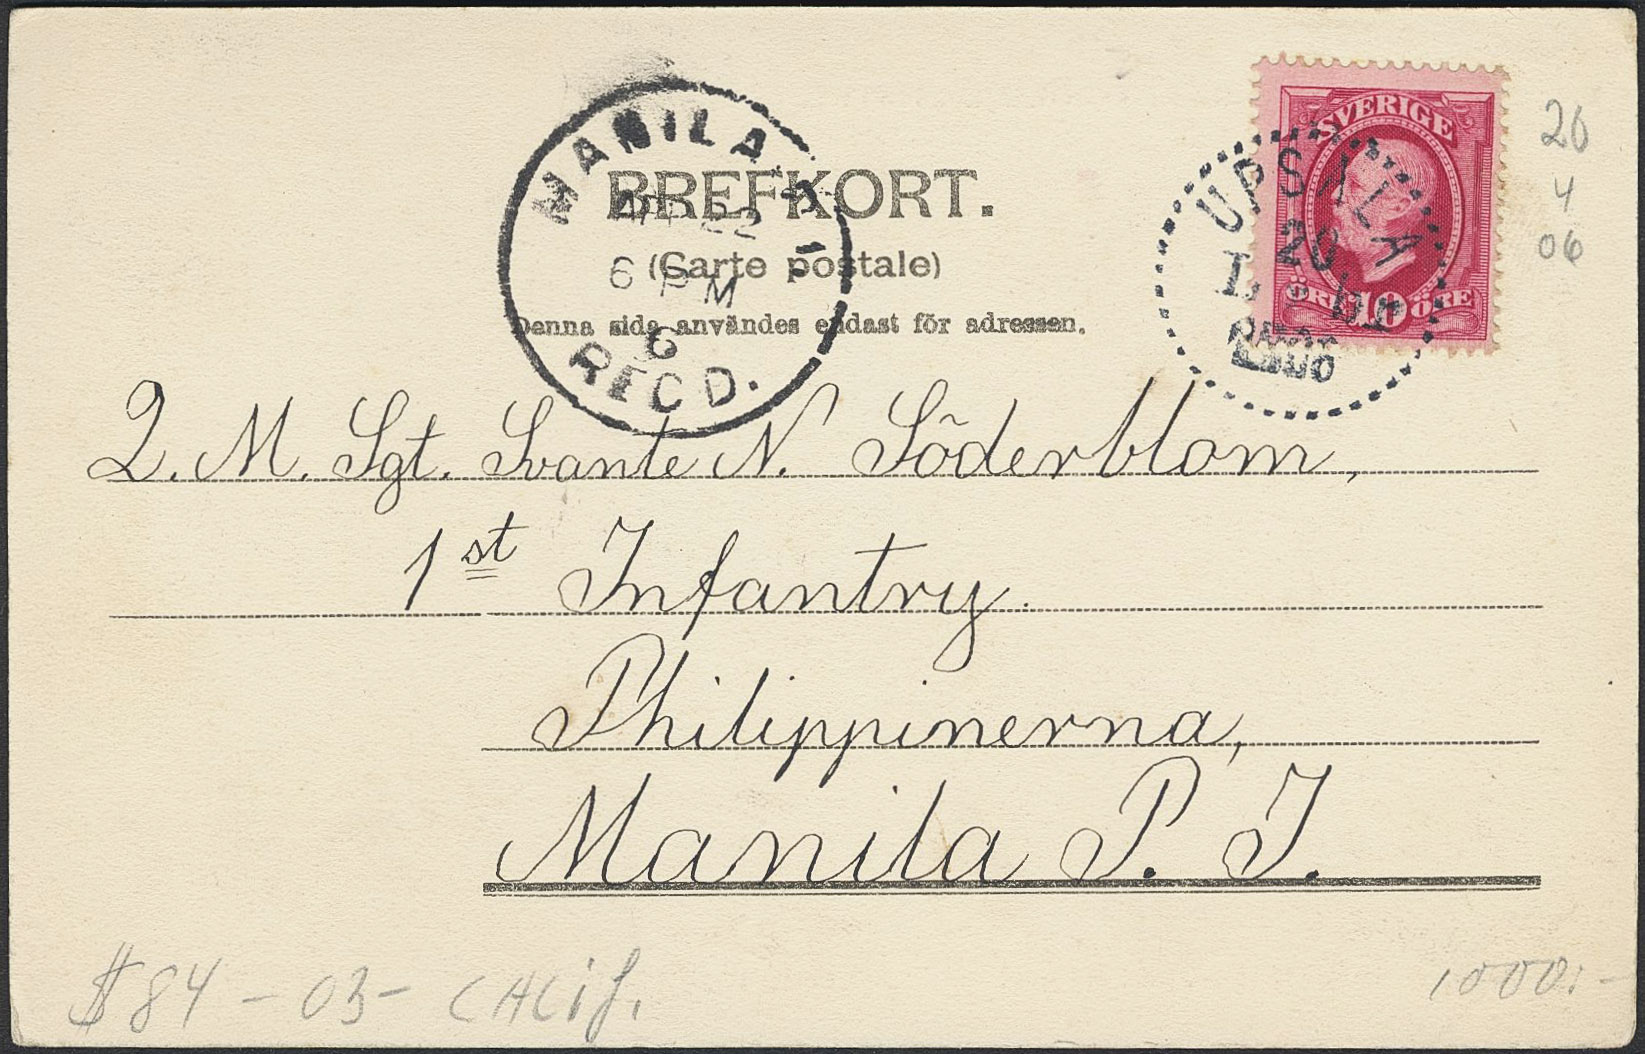 MANILA P. I.
APR 22
6 PM
6
RECD.
BREFKORT.
(Carte postale)
Denna sida användes endast för adressen.
SVERIGE
10
ÖRE ÖRE
UPSALA
20
1906
20
4
06
Q. M. Sgt. Svante N. Söderblom,
1st Infantry.
Philippinerna,
Manila P. I.
$84-03- CALif.
1000:-